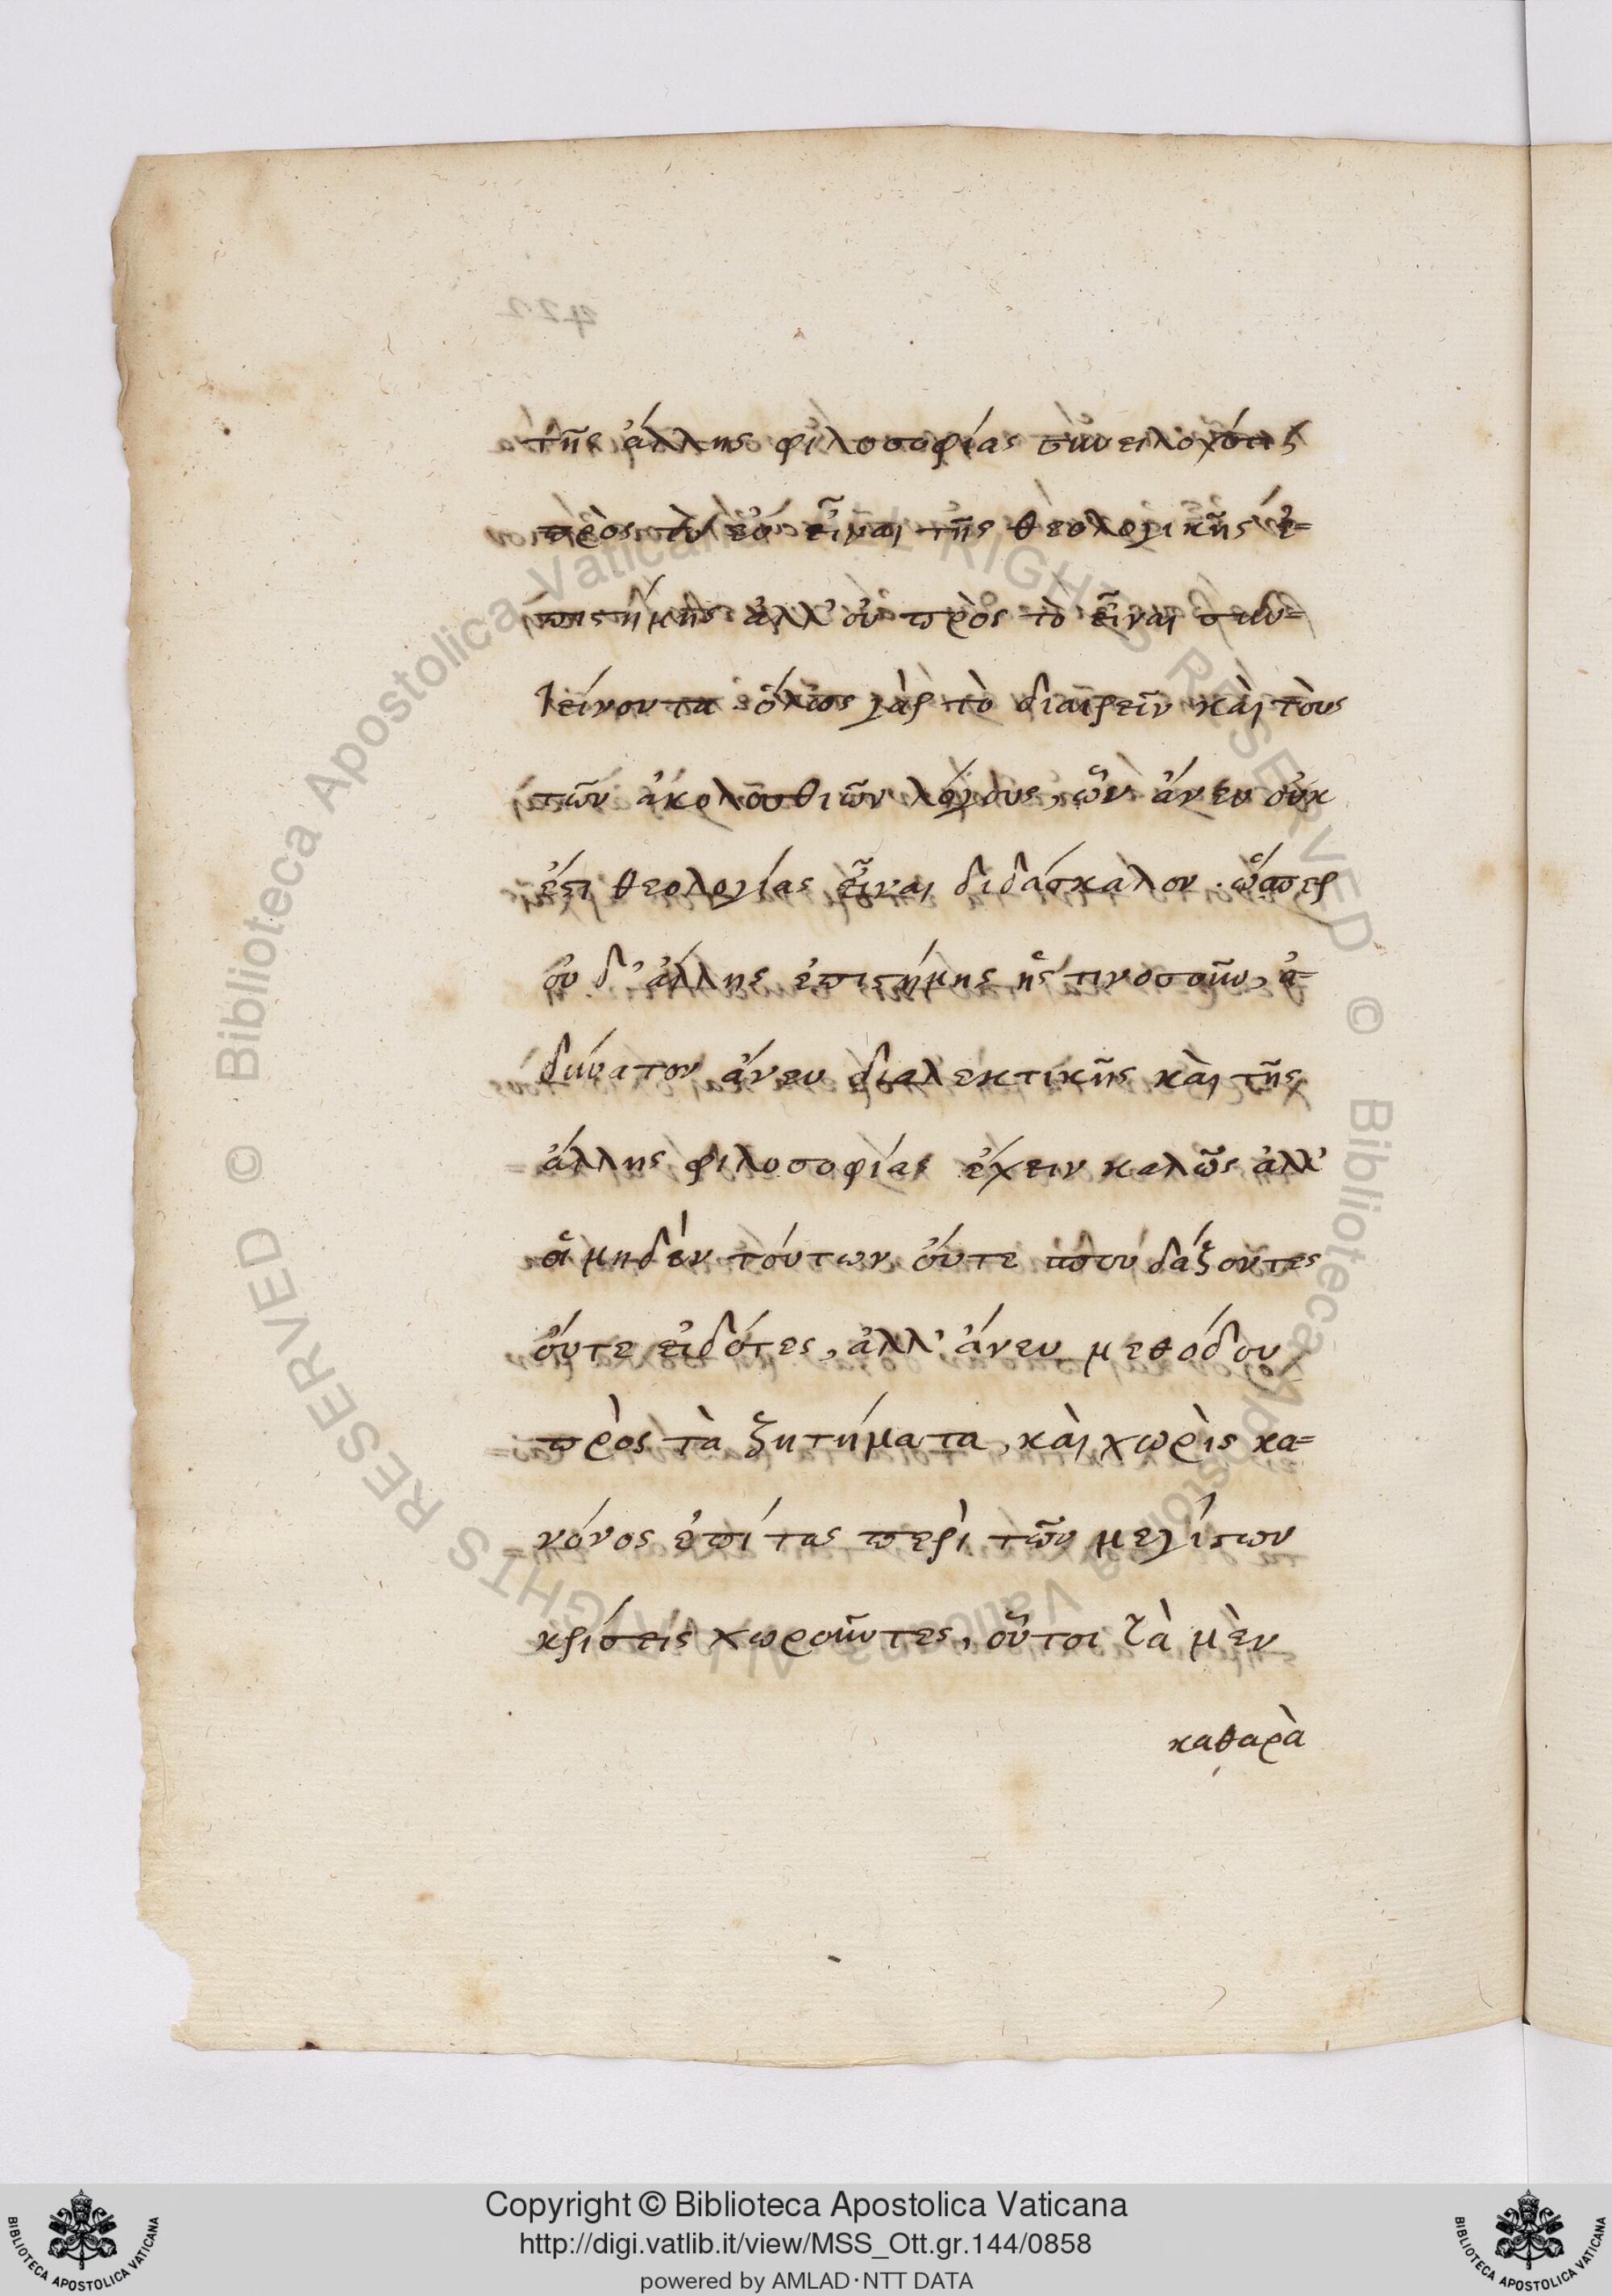 τῆς ἄλλης φιλοσοφίας συνειλοχότες
πρὸς τὸ εὖ εἶναι τῆς θεολογικῆς ἐ=
πιστήμης ἀλλ' οὐ πρὸς τὸ εἶναι συν=
τείνοντα· ὅλως γὰρ τὸ διαιρεῖν καὶ τοὺς
τῶν ἀκολουθιῶν λόγους, ὧν ἄνευ οὐκ
ἔστι θεολογίας εἶναι διδάσκαλον· ὥσπερ
οὐδ' ἄλλης ἐπιστήμης ἧς τινοσοῦν, ἀ=
δύνατον ἄνευ διαλεκτικῆς καὶ τῆς
ἄλλης φιλοσοφίας ἔχειν καλῶς, ἀλλ'
οἱ μηδὲν τούτων οὔτε σπουδάζοντες
οὔτε εἰδότες, ἀλλ' ἄνευ μεθόδου
πρὸς τὰ ζητήματα, καὶ χωρὶς κα=
νόνος ἐπί τας περὶ τῶν μεγίστων
κρίσεις χωροῦντες, οὗτοι τὰ μὲν
καθαρὰ
Copyright © Biblioteca Apostolica Vaticana
http://digi.vatlib.it/view/MSS_Ott.gr.144/0858
powered by AMLAD·NTT DATA
BIBLIOTECA APOSTOLICA VATICANA
BIBLIOTECA APOSTOLICA VATICANA
© Biblioteca Apostolica Vaticana ALL RIGHTS RESERVED
© Biblioteca Apostolica Vaticana ALL RIGHTS RESERVED